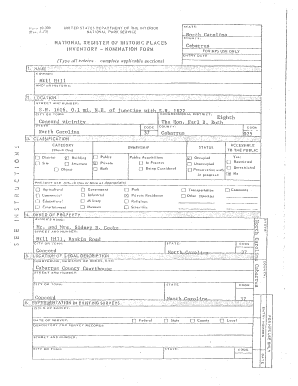 UNITED STATES DEPARTMENT OF THE INTERIOR
NATIONAL PARK SERVICE
NATIONAL REGISTER OF HISTORIC PLACES
INVENTORY - NOMINATION FORM
(Type all entries - complete applicable sections)
STATE:
North Carolina
COUNTY:
Cabarrus
FOR NPS USE ONLY
ENTRY DATE
1. NAME
COMMON:
Mill Hill
AND/OR HISTORIC:
2. LOCATION
STREET AND NUMBER:
CITY OR TOWN:
Concord vicinity
CONGRESSIONAL DISTRICT:
Eighth
The Hon. Earl B. Ruth
STATE
North Carolina
CODE
37
COUNTY:
Cabarrus
CODE
025
3. CLASSIFICATION
CATEGORY
(Check One)
OWNERSHIP
STATUS
ACCESSIBLE
TO THE PUBLIC
District
Building
Public
Public Acquisition:
Occupied
Yes:
Site
Structure
Private
In Process
Unoccupied
Restricted
Object
Both
Being Considered
Preservation work
in progress
Unrestricted
No
PRESENT USE (Check One or More as Appropriate)
Agricultural
Government
Park
Transportation
Comments
Commercial
Industrial
Private Residence
Other (Specify)
Educational
Military
Religious
Entertainment
Museum
Scientific
4. OWNER OF PROPERTY
OWNER'S NAME:
STREET AND NUMBER:
CITY OR TOWN:
Concord
STATE:
North Carolina
CODE
37
5. LOCATION OF LEGAL DESCRIPTION
COURTHOUSE, REGISTRY OF DEEDS, ETC:
Cabarrus County Courthouse
STREET AND NUMBER:
CITY OR TOWN:
Concord
STATE
North Carolina
CODE
37
6. REPRESENTATION IN EXISTING SURVEYS
TITLE OF SURVEY:
DATE OF SURVEY:
Federal
State
County
Local
DEPOSITORY FOR SURVEY RECORDS:
STREET AND NUMBER:
CITY OR TOWN:
STATE:
CODE
SEE INSTRUCTIONS
FOR NPS USE ONLY
ENTRY NUMBER
DATE